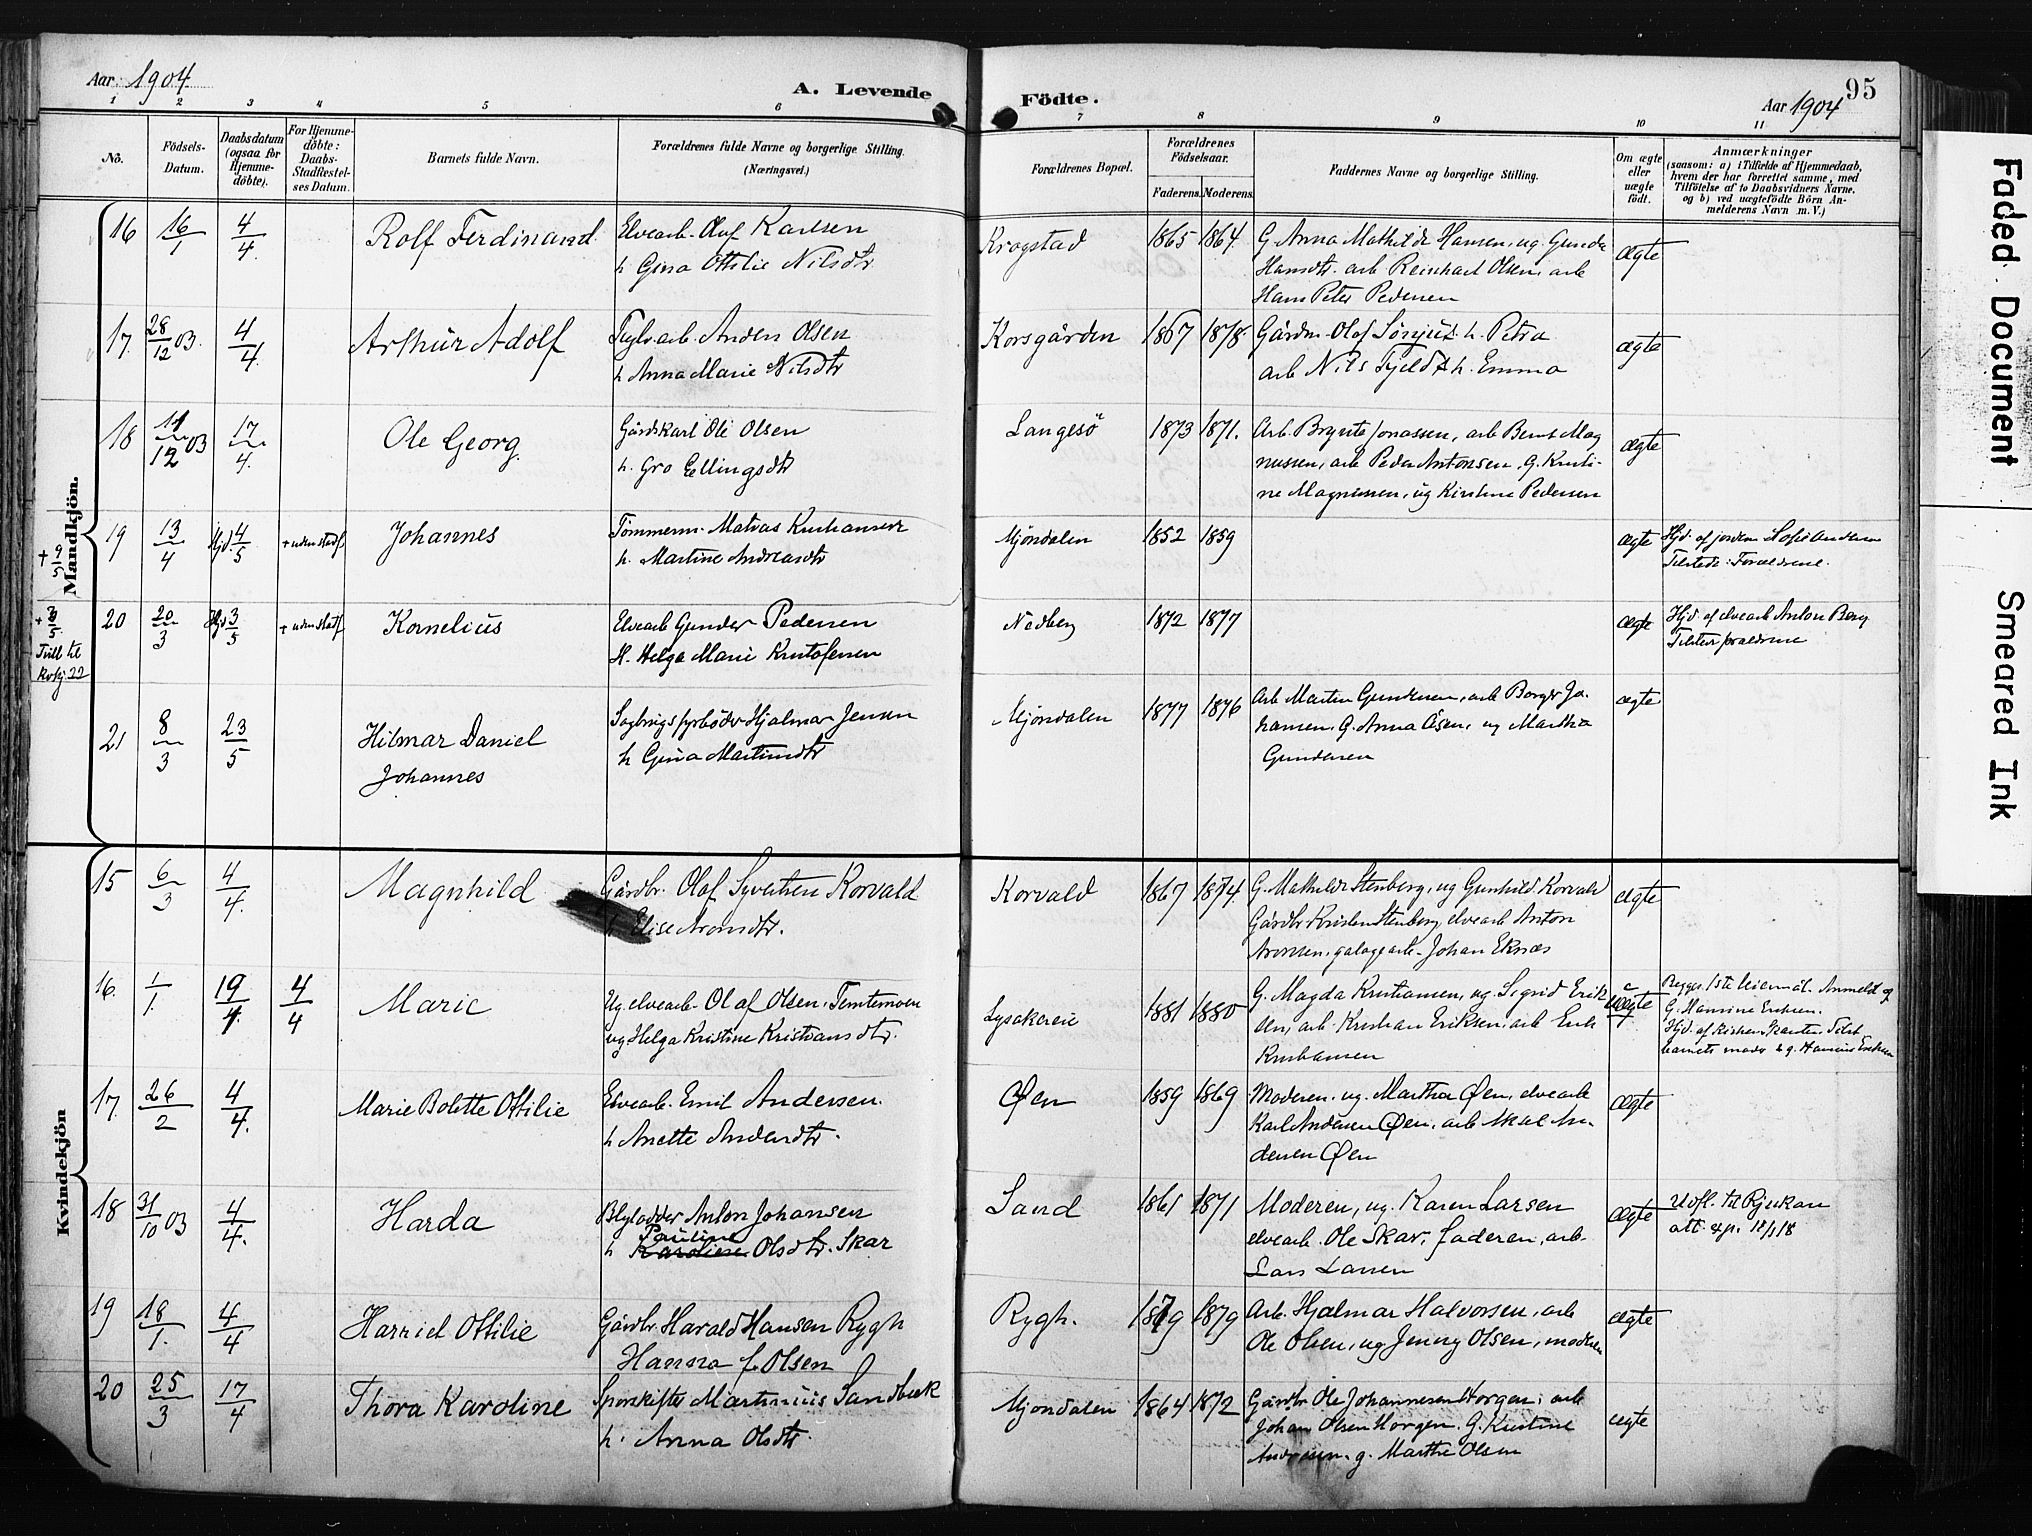 Aar 1904
A. Levende Födte.
95
Aar 1904
1 2 3 4 5 6 7 8 9 10 11
No. Födsels-Datum. Daabsdatum (ogsaa for Hjemme-döbte). For Hjemme-döbte: Daabs-Stadfæstel-ses Datum. Barnets fulde Navn. Forældrenes fulde Navne og borgerlige Stilling. (Næringsvei.)
Forældrenes Bopæl. Forældrenes Födselsaar. Faderens. Moderens. Faddernes Navne og borgerlige Stilling. Om ægte eller uægte födt.
Anmærkninger
(saasom: a) i Tilfælde af Hjemmedaab,
hvem der har forrettet samme, med
Tilföielse af to Daabsvidners Navne.
og b) ved uægtefödte Börn An-
melderens Navn m. V.)
Mandkjön.
16 16/1 4/4 Rolf Ferdinand Elvearb. Olaf Karlsen Krogstad 1865 1864 G Anna Mathilde Hansen, ug Gunda ægte
h Gina Ottilie Nilsdtr Hansdtr. arb Reinhart Olsen, arb
Hans Peter Pedersen
17. 28/12 03. 4/4 Arthur Adolf Teglv.arb. Anders Olsen Korsgården 1867 1878 Gårdm Olof h. Petra ægte
h Anna Marie Nilsdtr arb Nils Fjeld & h. Emma
18 11/12 03 17/4. Ole Georg. Gårdskarl Ole Olsen Langesö 1873 1871. Arb. Brynte Jonassen, arb Bernt Mag ægte
h. Gro Ellingsdtr nussen, arb Peder Antonsen, G. Kristi-
ne Magnussen, ug Kirstine Pedersen
+ 9/5 19 13/4 Hjd. 4/5 + uden stadf Johannes Tömmerm. Matias Kristiansen Mjöndalen 1852 1859 ægte Hjd. af jordem Sofie Andersen
h. Martine Andreasdtr Tilstede: Forældrene.
20 20/3 Hjd 3/5 + uden stadf Kornelius Elvearb Gunder Pedersen Nedberg 1872 1877 ægte Hjd. af elvearb Anton Berg
Tvill til H. Helga Marie Kristofersen Tilsted forældrene
Kvkj. 22
21 8/3 23/5 Hilmar Daniel Sagbrugsfyrböder Hjalmar Jensen Mjöndalen 1877 1876 Arb Martin Gundersen, arb Borger Jo- ægte
Johannes h Gina Martinsdtr hansen, G. Anna Åsen, ug Martha
Gundersen
Kvindekjön
15 6/3 4/4. Magnhild Gårdbr. Olof Syvertsen Korvald Korvald 1867 1874. G. Mathilde Stenberg, ug Gunhild Korvald ægte
h Elise Aronsdtr. Gårdbr Kristen Stenberg, elvearb Anton
Aronsen, galagearb. Johan Eknæs
16. 1/1. 19/1. 4/4 Marie Ug. elvearb. Olaf Olsen Temtemoen Lysakereie 1881 1880 G. Magda Kristiansen, ug. Sigrid Erik uægte Begges 1ste leiermål. Anmeldt af
ug Helga Kristine Kristiansdtr. sen, arb. Kristian Eriksen, arb Erik G. Hansine Eriksen.
Kristiansen Hjd. af Tilst
barnets moder & g. Hansine Eriksen
17. 26/2 4/4. Marie Bolette Ottilie Elvearb. Emil Andersen. Øen 1859 1869 Moderen, ug. Martha Øen, elvearb ægte
h Anette Andersdtr. Karl Andersen Øen, arb An-
dersen Øen
18 31/10 03 4/4. Harda Blylodder Anton Johansen Sand 1861 1871 Moderen, ug. Karen Larsen ægte Udfl. til Rjukan
h Pauline Karoline Olsdtr. Skar elvearb. Ole Skar, faderen, arb. att. 18
Lars Larsen
19 18/1. 4/4 Harriet Ottilie Gårdbr. Harald Hansen Rygh Rygh. 1879 1879 Arb. Hjalmar Halvorsen, arb ægte
Hanna f. Olsen Ole Olsen, ug Jenny Olsen, moderen
20 25/3 17/4 Thora Karoline Sporskifter Martinius Sandbæk Mjöndalen 1864 1872 Gårdbr Ole Johannesen Horgen, arb ægte
h. Anna Olsdtr. Johan Olsen Horgen, G. Kristine
Andersen. g. Marthe Olsen
Faded Document
Smeared Ink